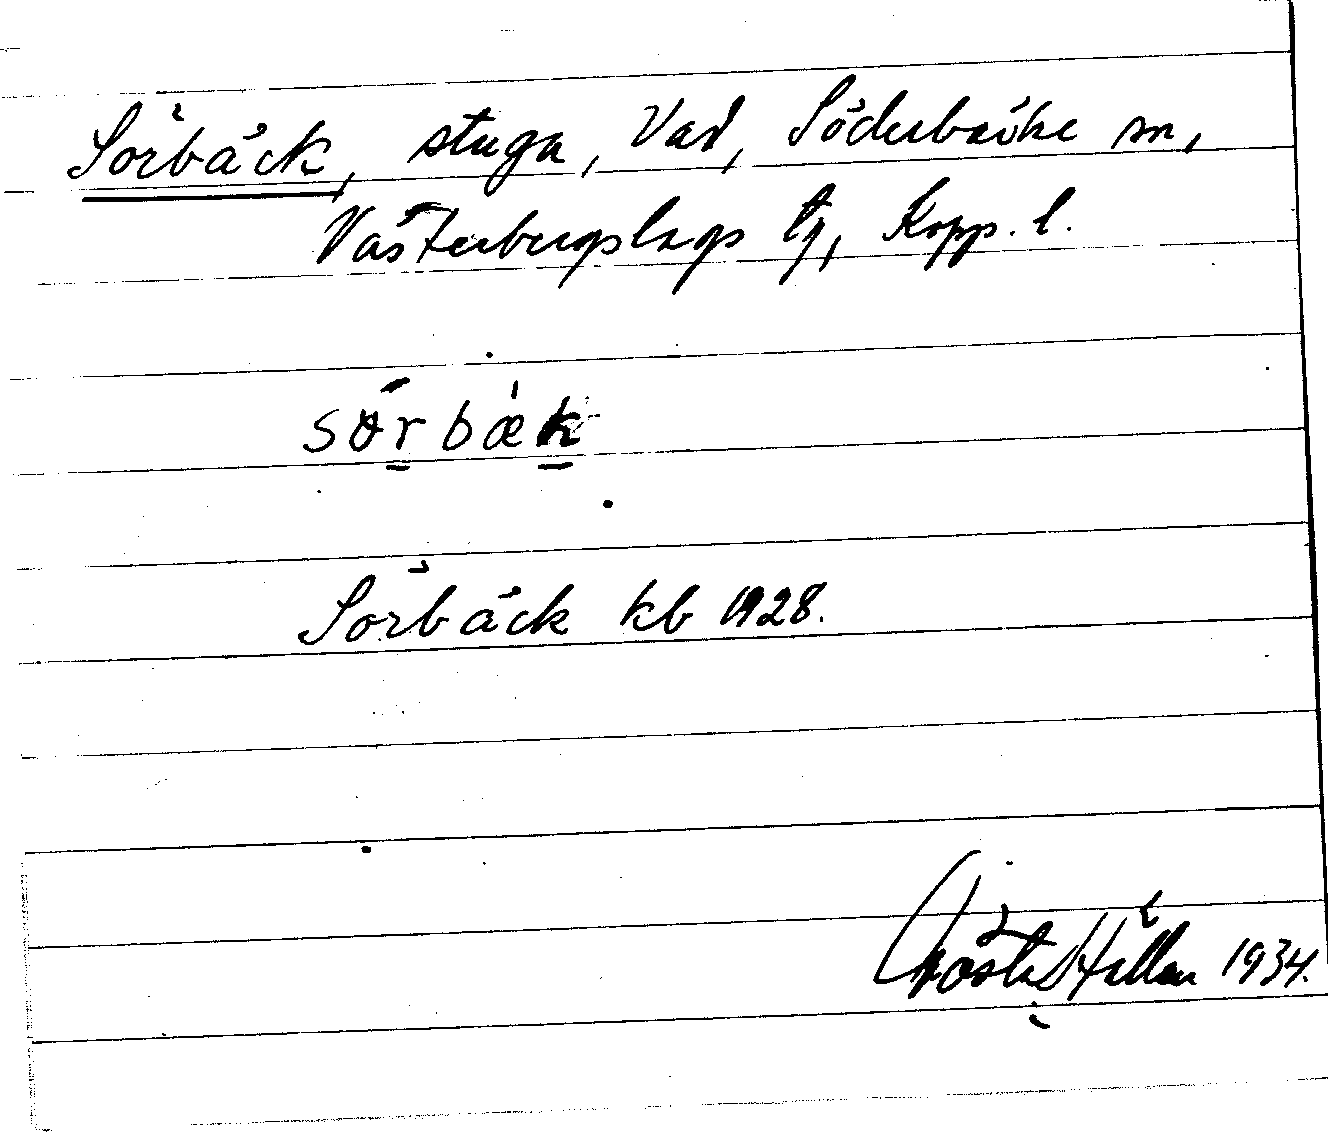 Sörbäck, stuga, Vad, Söderbärke sn,
Västerbergslags tg, Kopp. l.
sörbæk
Sörbäck kb 1928.
Gösta Hällen 1934.